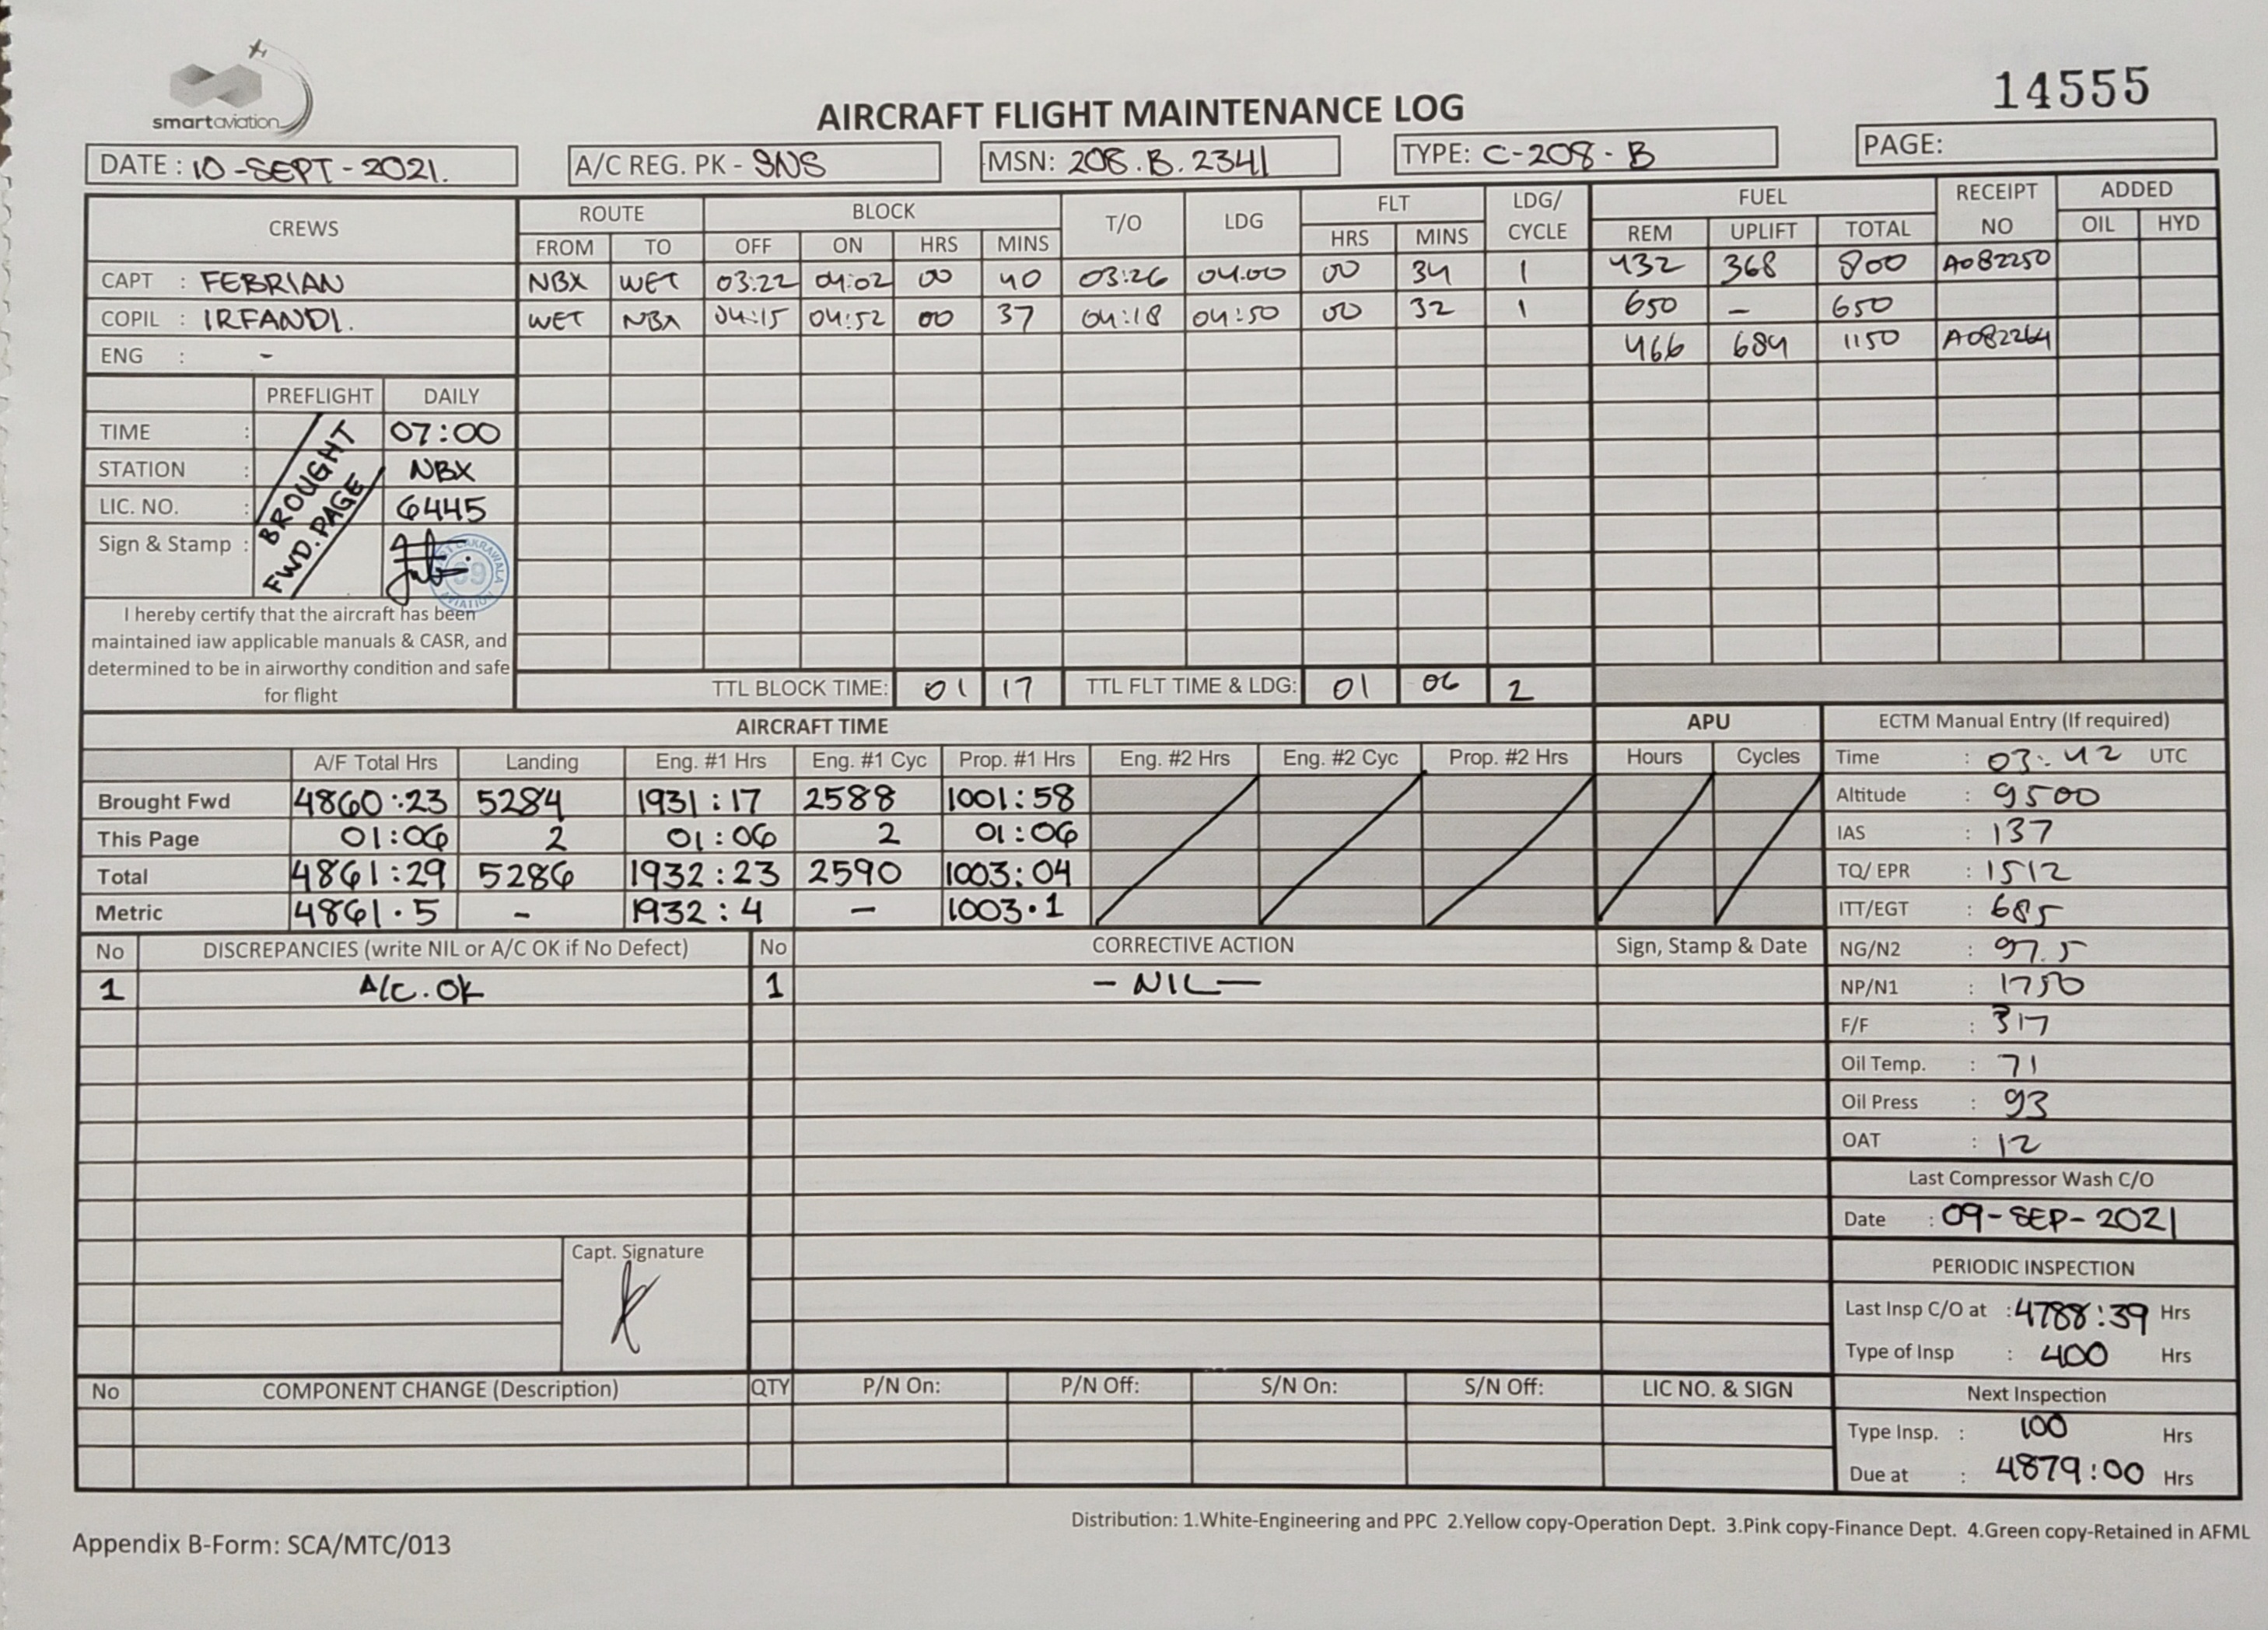 smartaviation
14555
AIRCRAFT FLIGHT MAINTENANCE LOG
DATE : 10-SEPT-2021. A/C REG. PK - SNS MSN: 208.B.2341 TYPE: C-208-B PAGE:
CREWS ROUTE BLOCK T/O LDG FLT LDG/ CYCLE FUEL RECEIPT NO ADDED
FROM TO OFF ON HRS MINS HRS MINS REM UPLIFT TOTAL OIL HYD
CAPT : FEBRIAN NBX WET 03:22 04:02 00 40 03:26 04.00 00 34 1 432 368 800 A082250
COPIL : IRFANDI. WET NBX 04:15 04:52 00 37 04:18 04:50 00 32 1 650 - 650
ENG : - 466 684 1150 A082264
PREFLIGHT DAILY
TIME : 07:00
STATION : NBX
LIC. NO. : 6445
Sign & Stamp :
BROUGHT
FWD. PAGE
CAKRAWALA
69
AVIATION
I hereby certify that the aircraft has been
maintained iaw applicable manuals & CASR, and
determined to be in airworthy condition and safe
for flight
TTL BLOCK TIME: 01 17 TTL FLT TIME & LDG: 01 06 2
AIRCRAFT TIME APU ECTM Manual Entry (If required)
A/F Total Hrs Landing Eng. #1 Hrs Eng. #1 Cyc Prop. #1 Hrs Eng. #2 Hrs Eng. #2 Cyc Prop. #2 Hrs Hours Cycles Time : 03:42 UTC
Brought Fwd 4860:23 5284 1931:17 2588 1001:58 Altitude : 9500
This Page 01:06 2 01:06 2 01:06 IAS : 137
Total 4861:29 5286 1932:23 2590 1003:04 TQ/ EPR : 1512
Metric 4861.5 - 1932:4 - 1003.1 ITT/EGT : 685
No DISCREPANCIES (write NIL or A/C OK if No Defect) No CORRECTIVE ACTION Sign, Stamp & Date NG/N2 : 97.5
1 A/C. OK 1 - NIL - NP/N1 : 1750
F/F : 317
Oil Temp. : 71
Oil Press : 93
OAT : 12
Last Compressor Wash C/O
Date : 09-SEP-2021
Capt. Signature
PERIODIC INSPECTION
Last Insp C/O at : 4788:39 Hrs
Type of Insp : 400 Hrs
No COMPONENT CHANGE (Description) QTY P/N On: P/N Off: S/N On: S/N Off: LIC NO. & SIGN Next Inspection
Type Insp. : 100 Hrs
Due at : 4879:00 Hrs
Distribution: 1.White-Engineering and PPC 2.Yellow copy-Operation Dept. 3.Pink copy-Finance Dept. 4.Green copy-Retained in AFML
Appendix B-Form: SCA/MTC/013